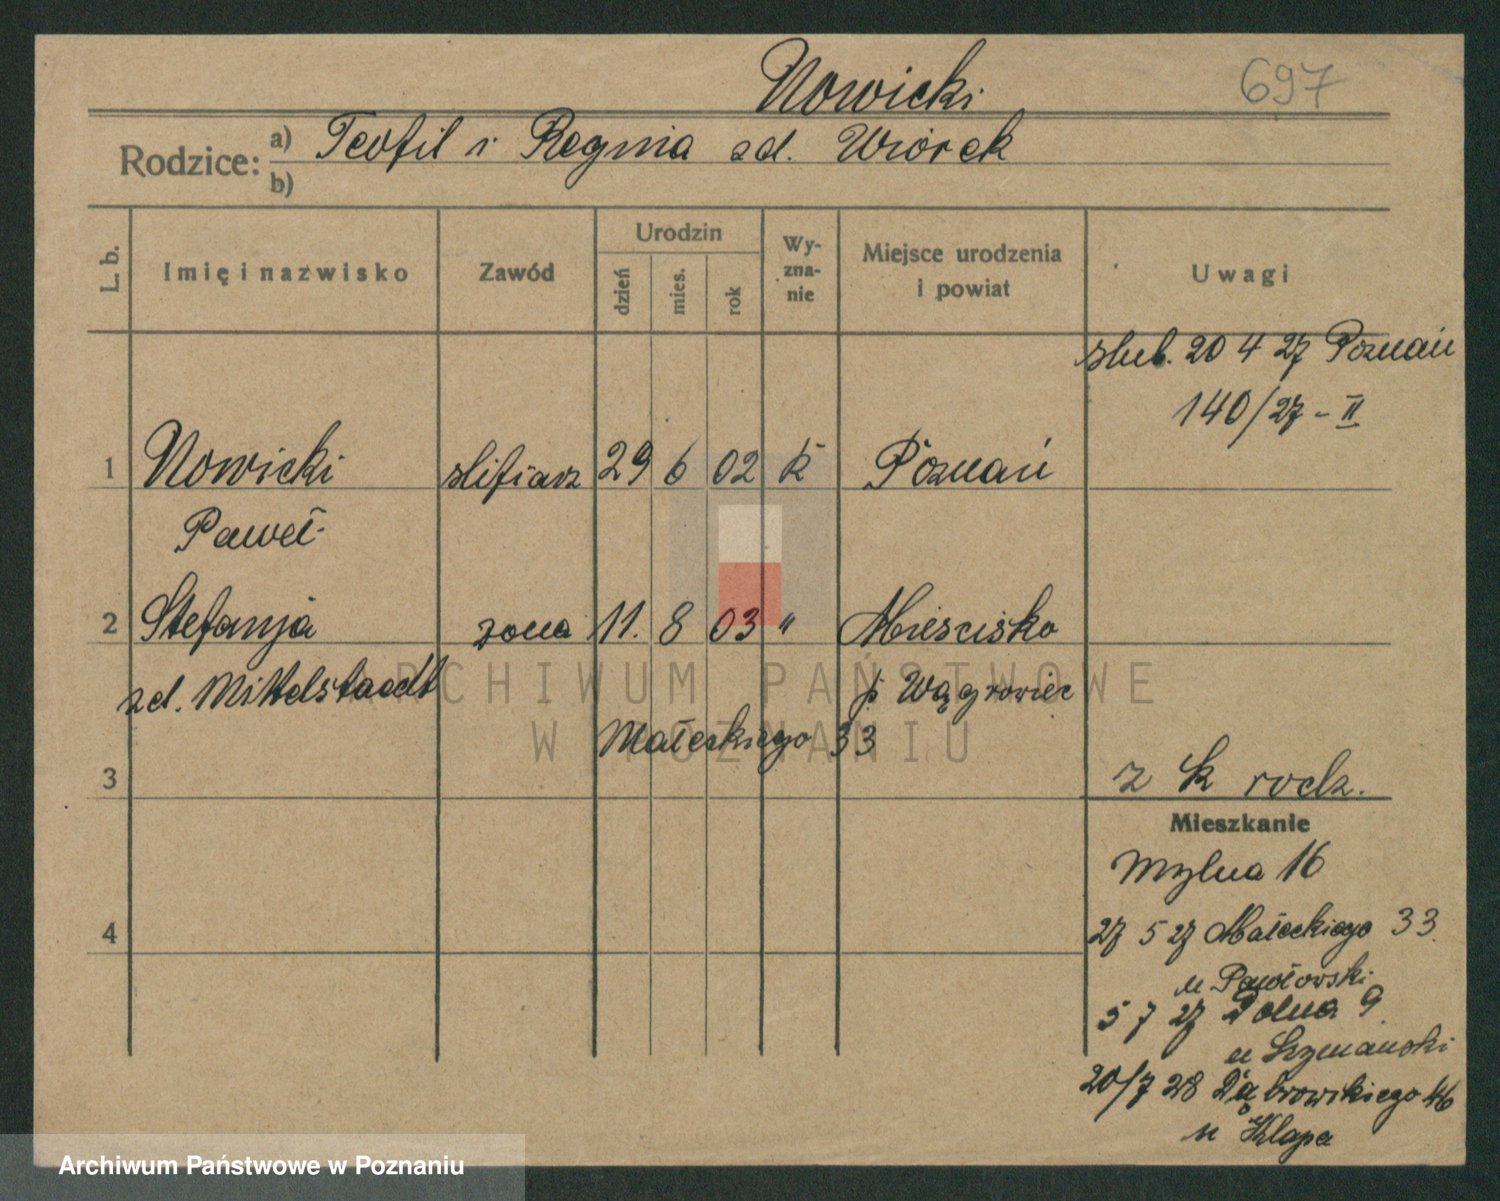 Nowicki
697
Rodzice:
a) Teofil i Regina zd. Wiórek
b)
L. b.
Imię i nazwisko
Zawód
Urodzin
dzień
mies.
rok
Wy-
zna-
nie
Miejsce urodzenia
i powiat
Uwagi
ślub. 20 4 27 Poznań
140/27 - II
1 Nowicki ślifiarz 29 6 02 k Poznań
Paweł
2 Stefanja żona 11. 8 03 " Mieścisko
zd. Mittelstaedt p Wągrowiec
ARCHIWUM PAŃSTWOWE
W POZNANIU
Małeckiego 33
3
z k rodz.
Mieszkanie
Mylna 16
4
27 5 27 Małeckiego 33
u Pawłowski
5 7 27 Polna 9
u Szymański
20/7 28 Dąbrowskiego 46
u Klapa
Archiwum Państwowe w Poznaniu